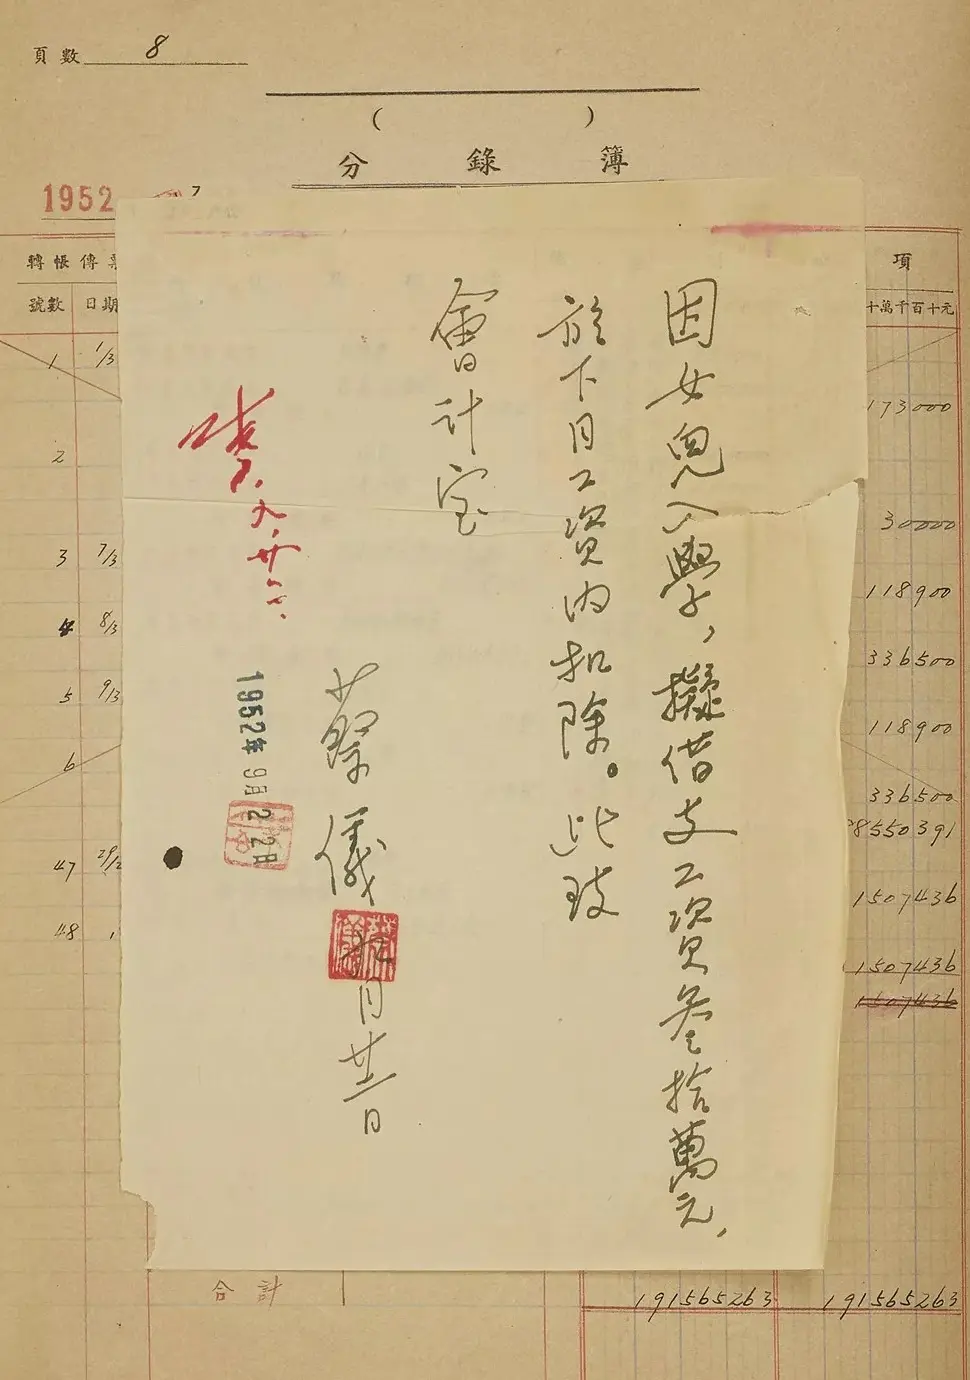 頁數 8
( )
分錄簿
1952
7
轉帳傳票
號數 日期
項
十萬千百十元
1 1/3
173000
2
30000
3 7/3
118900
4 8/3
336500
5 9/3
118900
6
336500
8550391
47 29/12
1507436
48
1507436
1507436
合計 191565263 191565263
因女兒入學,擬借支工資叁拾萬元,
於下月工資內扣除。此致
會計室
蔡儀
九月廿二日
九.廿二.
1952年9月22日